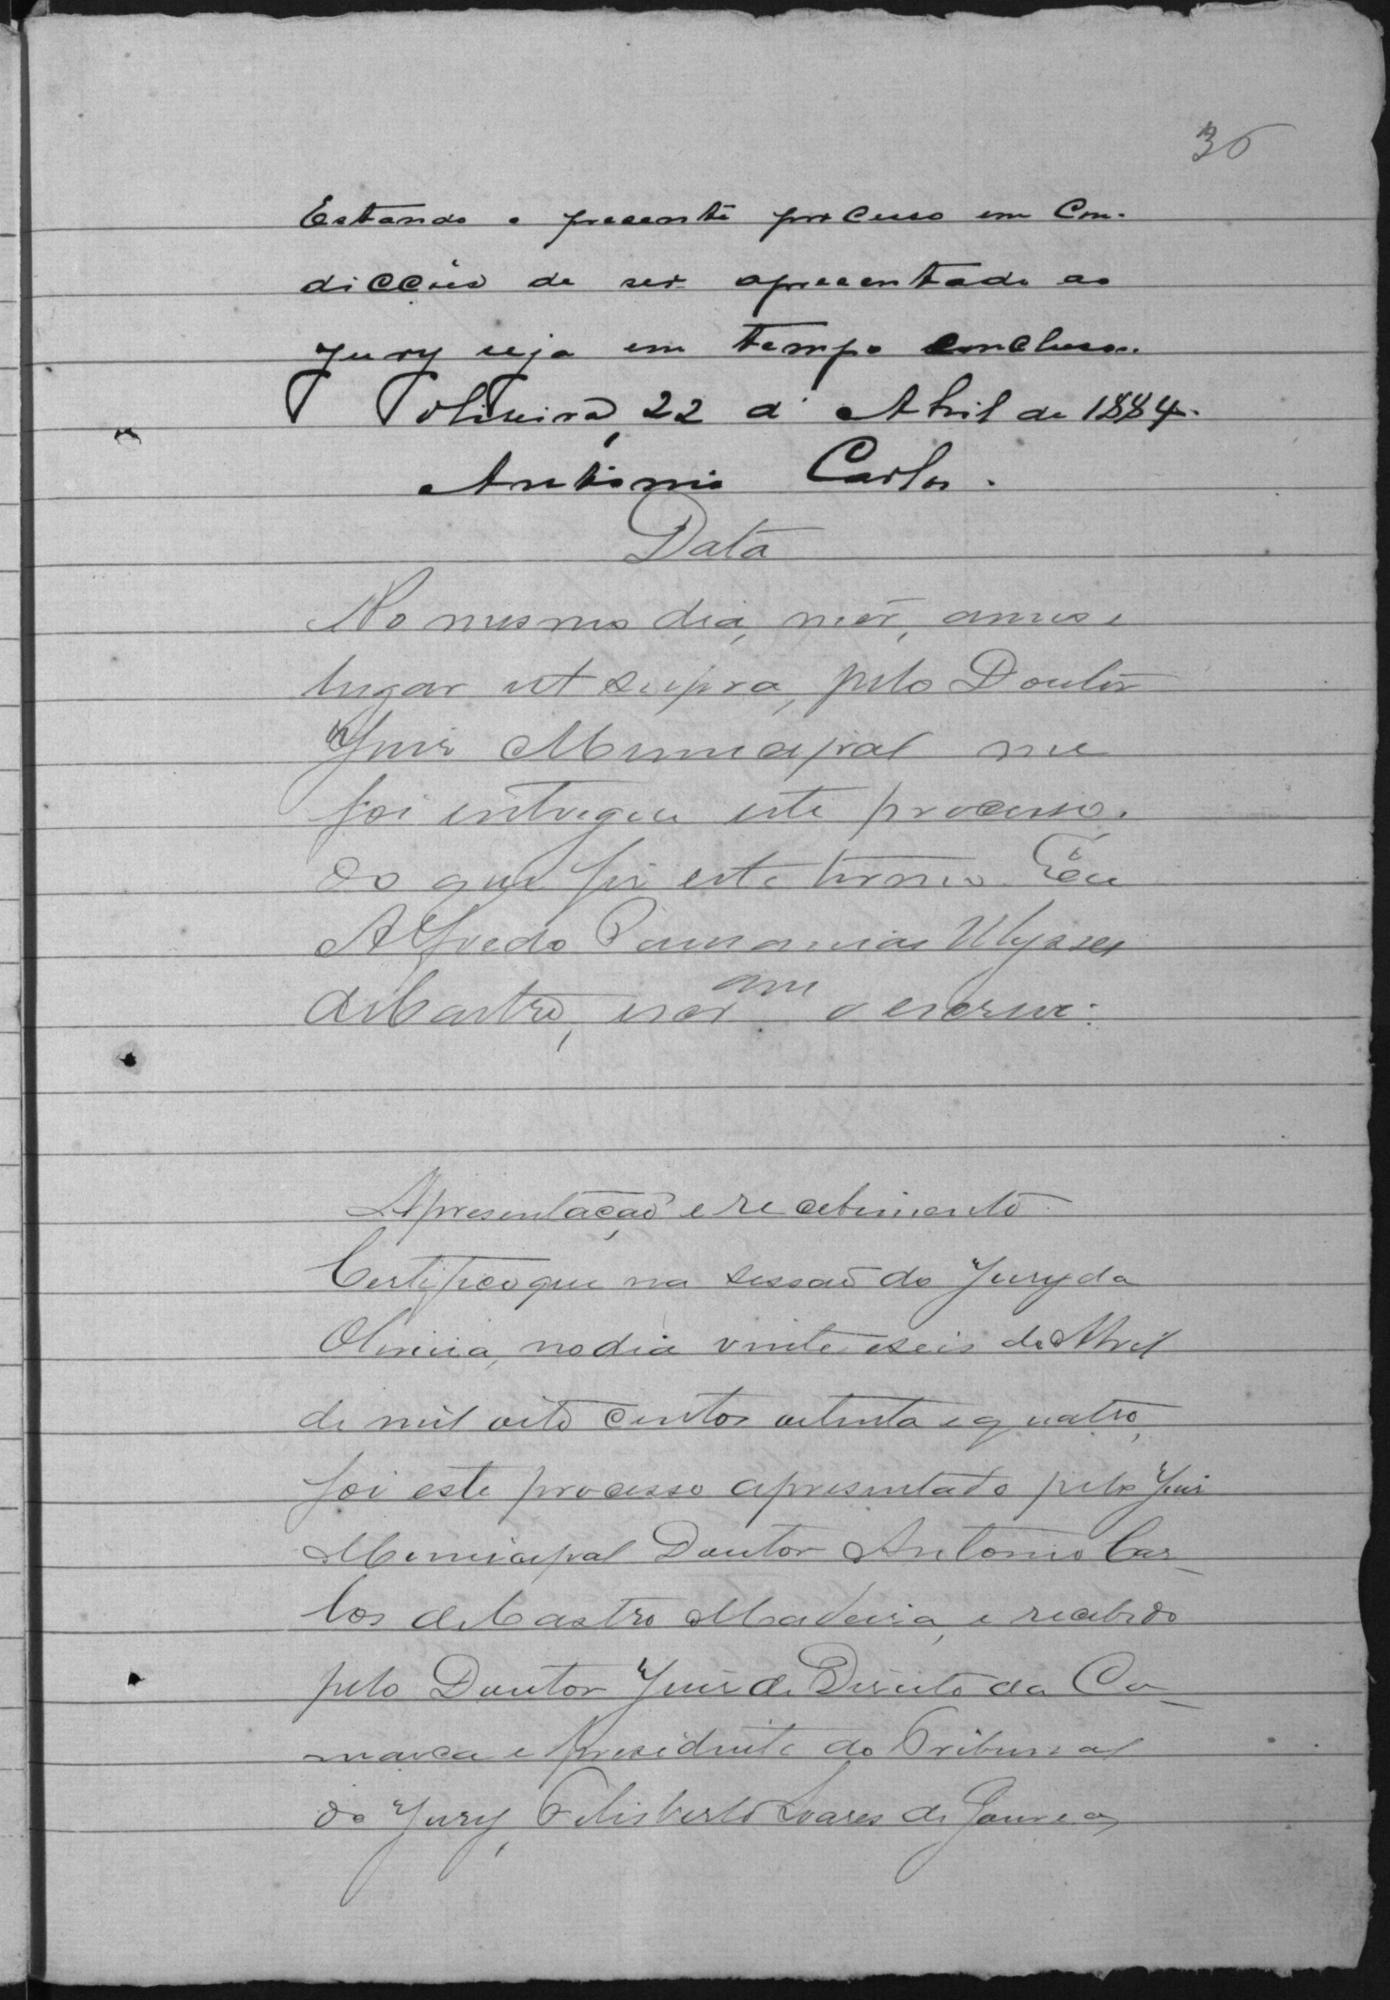 36
Estando o presente processo em con-
dicções de ser apresentado ao
Jury seja em tempo concluso.
Oliveira, 22 d' Abril de 1884.
Antonio Carlos.
Data
No mesmo dia, mez, anno e
lugar ut supra, pelo Doutor
Juiz Municipal me
foi entregue este processo.
do que fiz este termo. Eu
Alfredo Pausanias Ulysses
de Castro, escr am o escrevi.
Apresentação e recebimento
Certifico que na sessão do Jury da
Oliveira, no dia vinte e seis de Abril
de mil oito centos oitenta e quatro,
foi este processo apresentado pelo Juiz
Municipal Doutor Antonio Car-
los de Castro Madeira, e recebido
pelo Doutor Juiz de Direito da Co-
marca e Presidente do Tribunal
do Jury, Felisberto Soares de Gouvea,